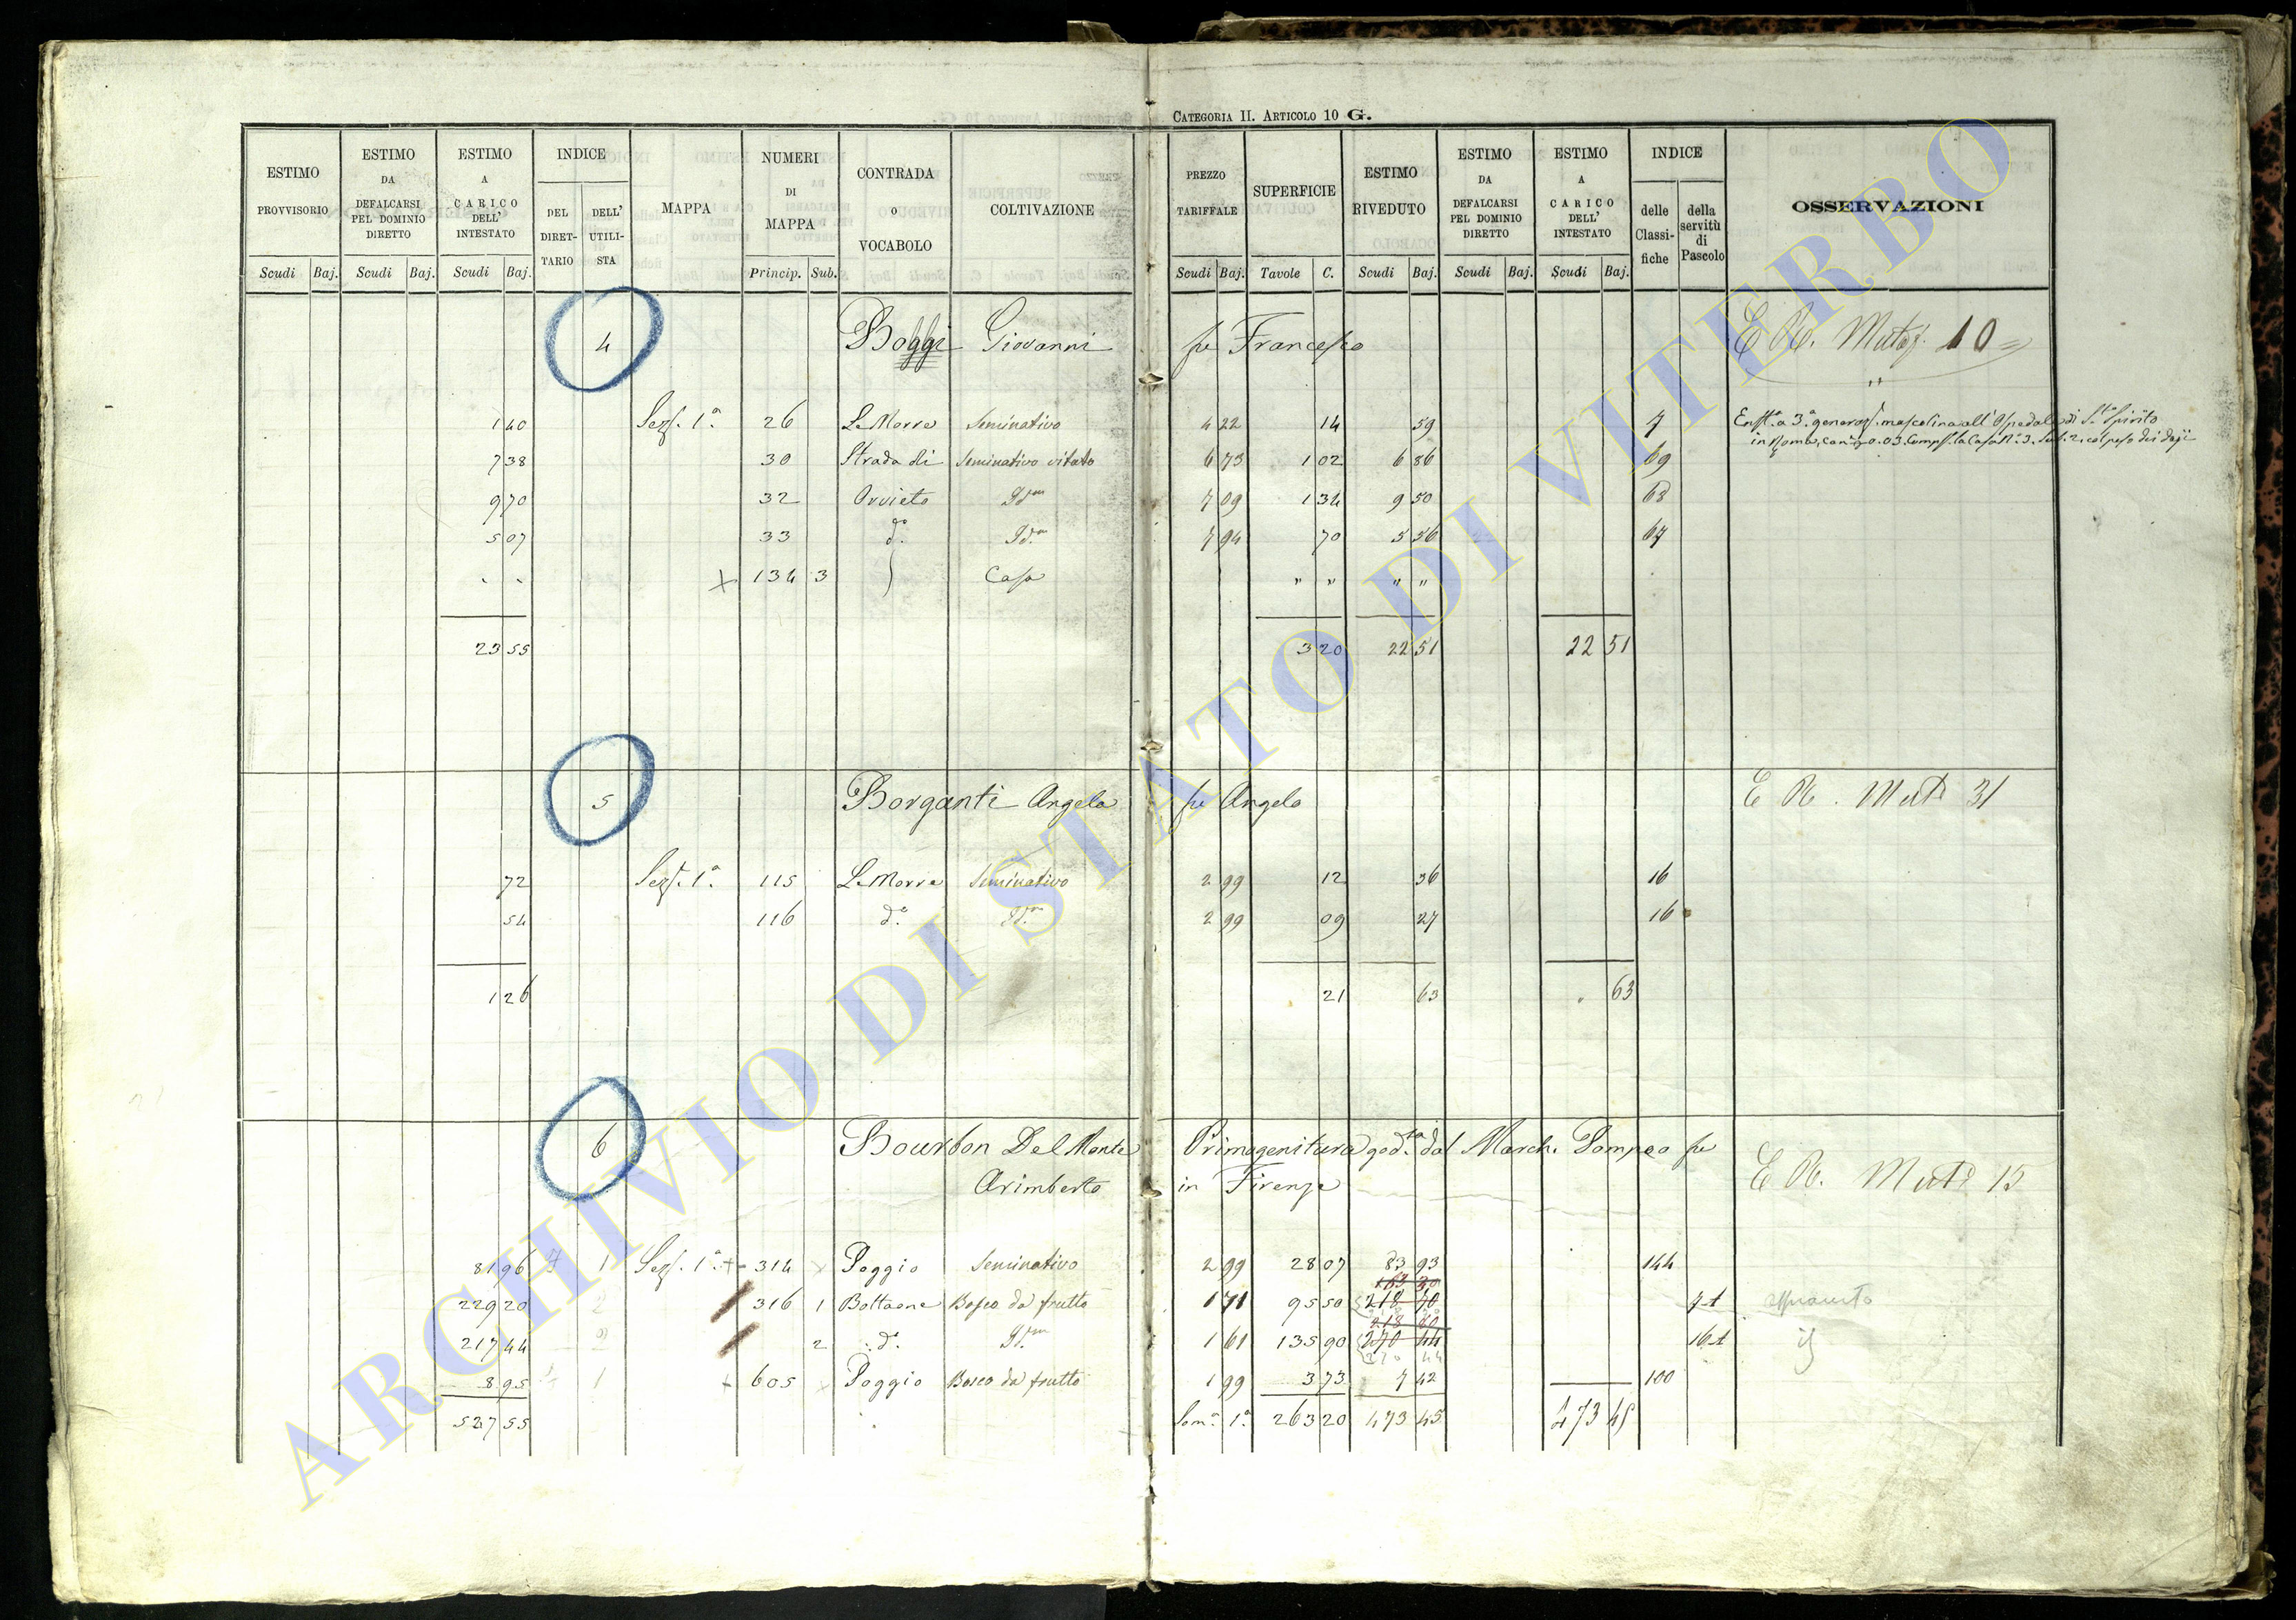 Categoria II. Articolo 10 G.
ESTIMO PROVVISORIO Scudi Baj. ESTIMO DA DEFALCARSI PEL DOMINIO DIRETTO Scudi Baj. ESTIMO A CARICO DELL' INTESTATO Scudi Baj. INDICE DEL DIRET-TARIO DELL' UTILI-STA MAPPA NUMERI DI MAPPA Princip. Sub. CONTRADA o VOCABOLO COLTIVAZIONE PREZZO TARIFFALE Scudi Baj. SUPERFICIE Tavole C. ESTIMO RIVEDUTO Scudi Baj. ESTIMO DA DEFALCARSI PEL DOMINIO DIRETTO Scudi Baj. ESTIMO A CARICO DELL' INTESTATO Scudi Baj. INDICE delle Classi-fiche della servitù di Pascolo OSSERVAZIONI
4 Boggi Giovanni fu Francesco E R. Mutaz. 10 =
1 40 Sez. 1ª 26 Le Morre Seminativo 4 22 14 59 7 Enfta. a 3ª generaz. mascolina all' Ospedale di Sto Spirito
in Roma, can. 0.03 Comps. la Casa N. 3. Sub. 2. col peso dei dazi
7 38 30 Strada di Seminativo vitato 6 73 1 02 6 86 69
9 70 32 Orvieto Idm 7 09 1 34 9 50 68
5 07 33 do. Idm 7 94 70 5 56 67
" " x 134 3 Casa " " " "
23 55 3 20 22 51 22 51
5 Borganti Angela fu Angelo E R. Muta 31
72 Sez. 1ª 115 Le Morre Seminativo 2 99 12 36 16
54 116 do. Idm 2 99 09 27 16
1 26 21 63 " 63
6 Bourbon Del Monte Primogenitura god.ta dal March. Pompeo fu
Arimberto in Firenze E R. Muta 15
81 96 1 Sez. 1ª + 314 x Poggio Seminativo 2 99 28 07 83 93 144
229 20 2 316 1 Bottaone Bosco da frutto 1 71 95 50 163 30 218 70 7 t
217 44 2 2 do. Idm 1 61 135 90 218 80 270 44 16 t
8 95 1 + 605 x Poggio Bosco da frutto 1 99 3 73 7 42 100
537 55 Som. 1ª 263 20 473 45 473 45
ARCHIVIO DI STATO DI VITERBO